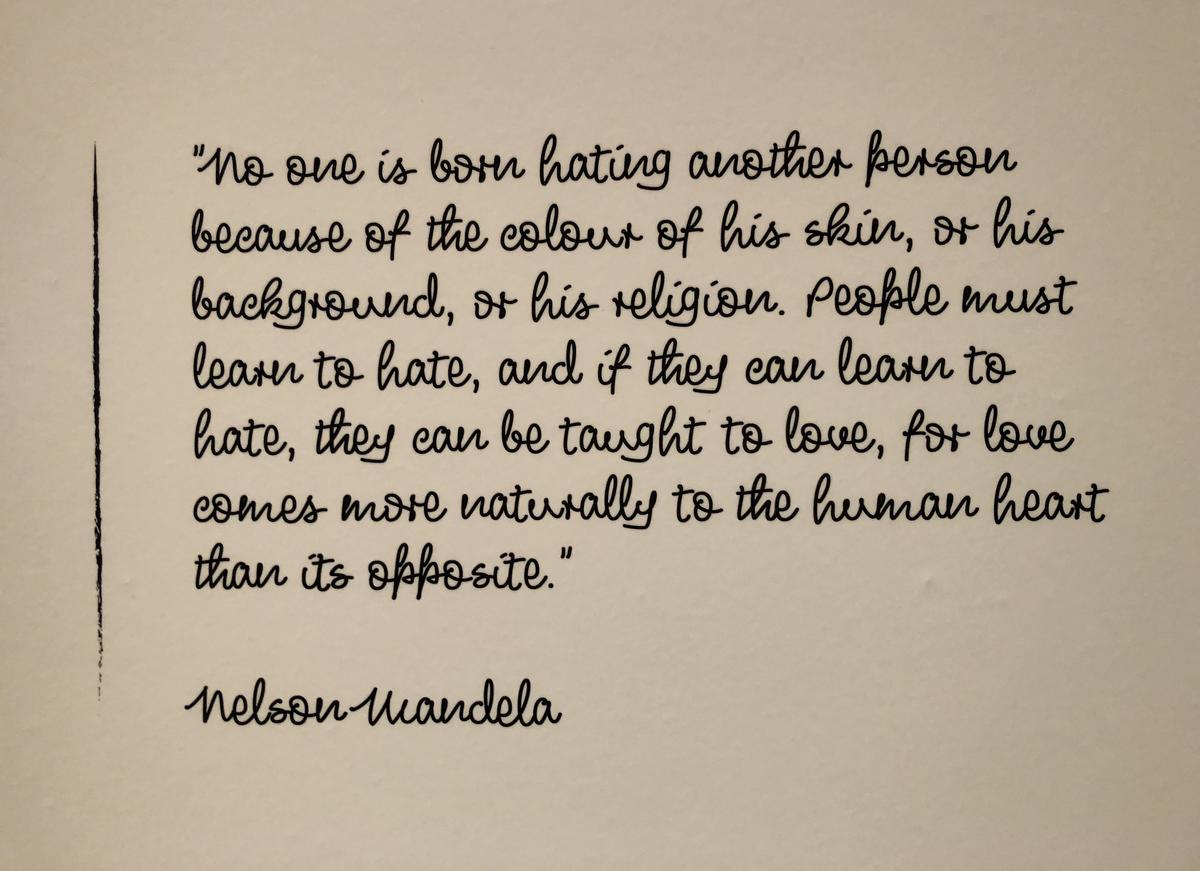 "No one is born hating another person
because of the colour of his skin, or his
background, or his religion. People must
learn to hate, and if they can learn to
hate, they can be taught to love, for love
comes more naturally to the human heart
than its opposite."
Nelson Mandela